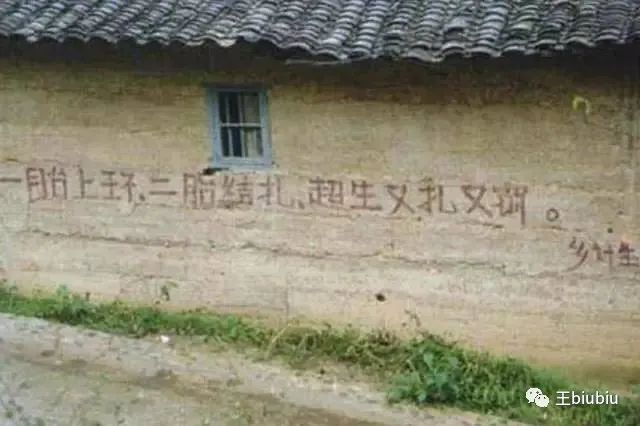 一胎上环、二胎结扎、超生又扎又罚。
乡计生
王biubiu